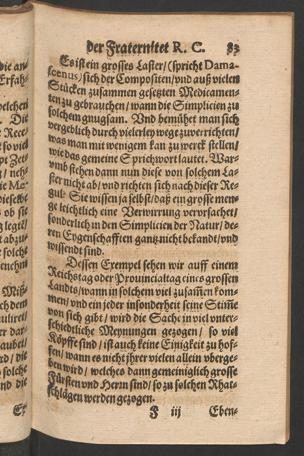 der Fraternitet R. C. 83
Es ist ein grosses Laster / (spricht Dama-
scenus / sich der Compositen / vnd auß vielen
Stücken zusammen gesetzten Medicamen-
ten zu gebrauchen / wann die Simplicien zu
solchem gnugsam. Vnd bemühet man sich
vergeblich durch vielerley wege zuverrichten /
was man mit wenigem kan zu werck stellen /
wie das gemeine Sprichwort lautet. War-
vmb stehen dann nun diese von solchem La-
ster nicht ab / vnd richten sich nach dieser Re-
gul? Sie wissen ja selbst / daß ein grosse men-
ge leichtlich eine Verwirrung verursachet /
sonderlich in den Simplicien der Natur / de-
ren Eygenschafften gantz nicht bekandt / vnd
wissendt sind.
Dessen Exempel sehen wir auff einem
Reichstag oder Prouincialtag eines grossen
Landts / wann in solchem viel zusam̃en kom-
men / vnd ein jeder insonderheit seine Stim̃e
von sich gibt / wird die Sache in viel vnter-
schiedliche Meynungen gezogen / so viel
Köpffe sind / ist auch keine Einigkeit zu hof-
fen / wann es nicht jhrer vielen allein vberge-
ben wird / welches dann gemeiniglich grosse
Fürsten vnd Herrn sind / so zu solchen Rhat-
schlägen werden gezogen.
F iij Eben-